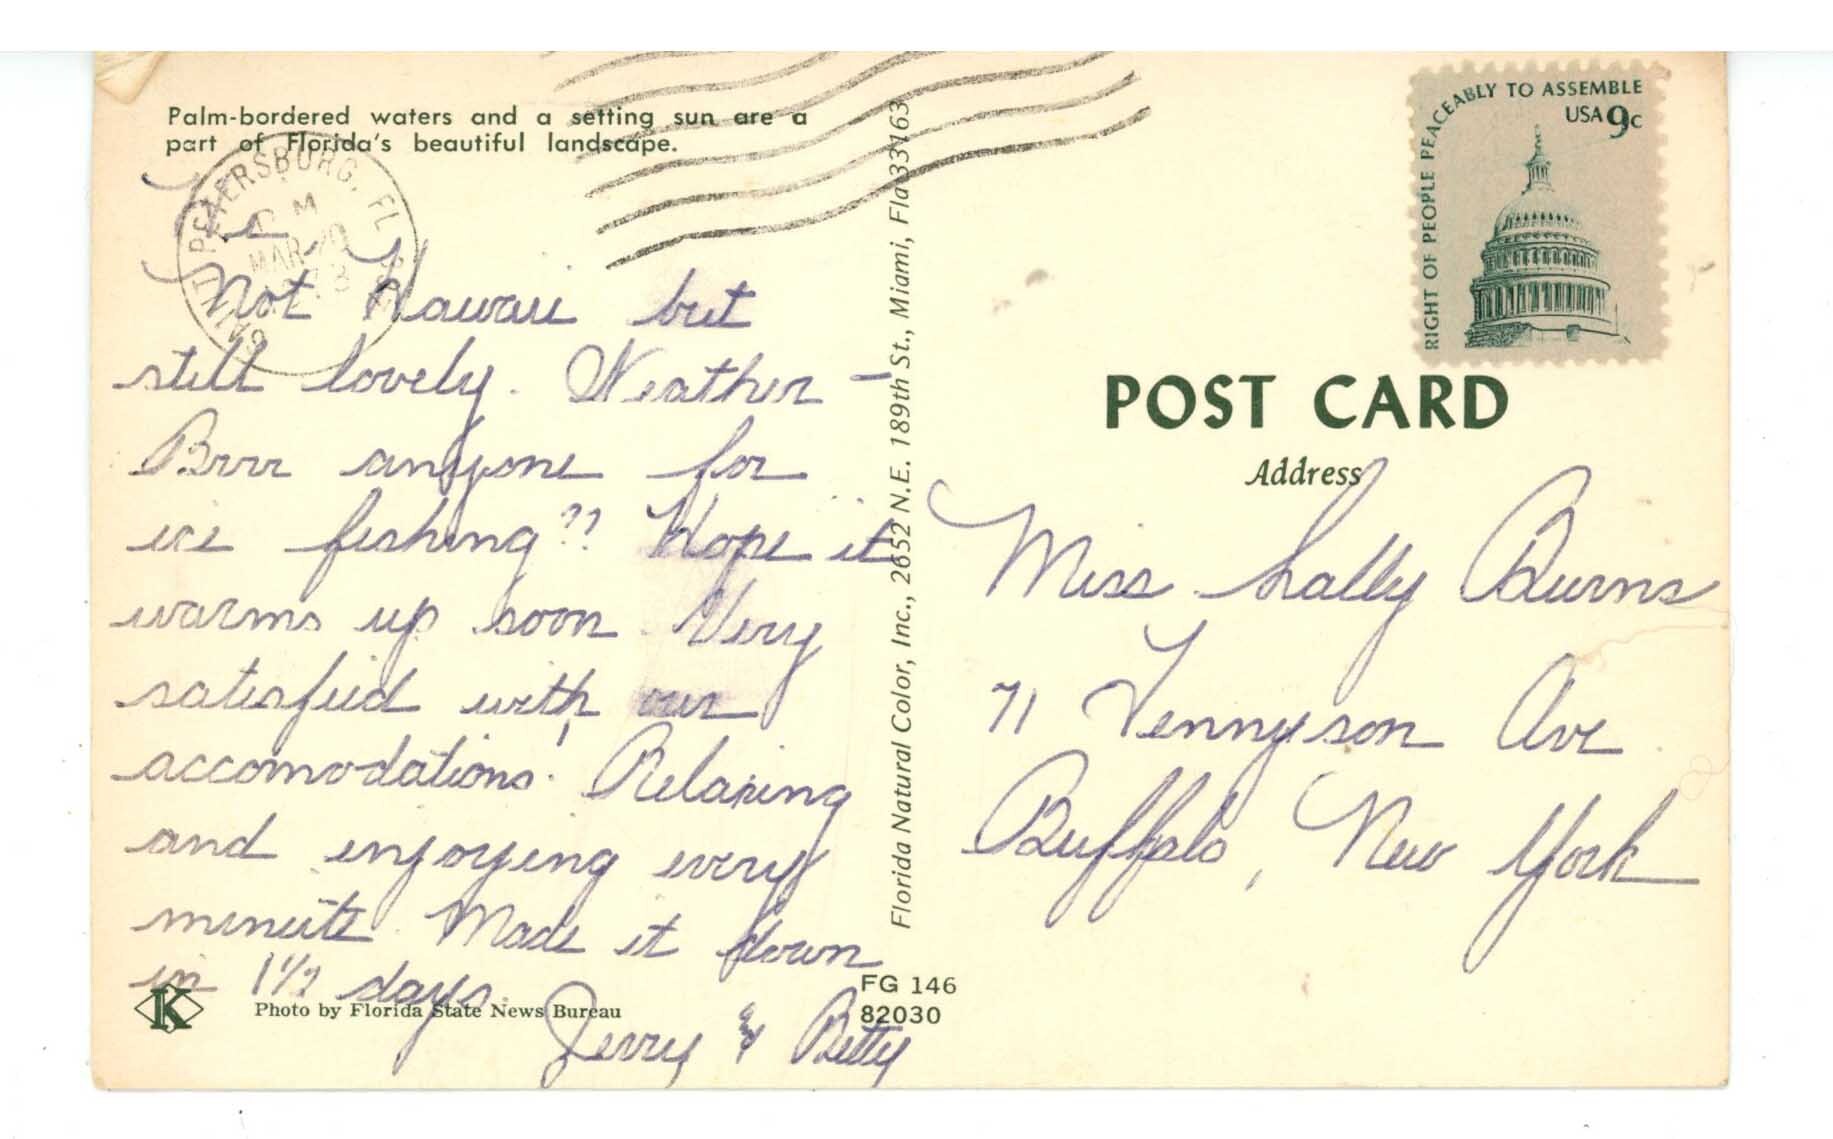 Palm-bordered waters and a setting sun are a
part of Florida's beautiful landscape.
SAINT PETERSBURG, FL
MAR 20
Not Hawaii but
still lovely. Weather –
Brrr anyone for
ice fishing?? Hope it
warms up soon. Very
satisfied with our
accomodations. Relaxing
and enjoying every
minute. Made it down
in 1 1/2 days.
Jerry & Betty
K
Photo by Florida State News Bureau
Florida Natural Color, Inc., 2652 N.E. 189th St., Miami, Fla 33163
FG 146
82030
RIGHT OF PEOPLE PEACEABLY TO ASSEMBLE
USA 9c
POST CARD
Address
Miss Sally Burns
71 Tennyson Ave
Buffalo, New York